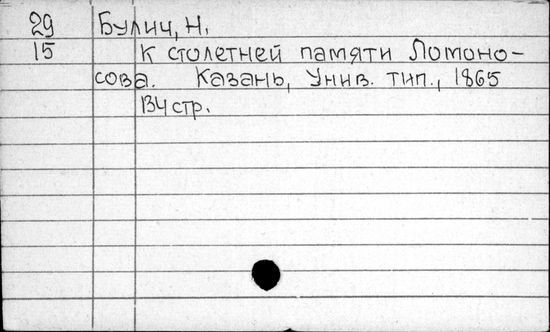 29 Булич, Н.
15 К столетней памяти Ломоно-
сова. Казань, Унив. тип., 1865
134 стр.